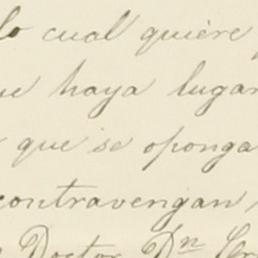 lo cual quiere
haya lugar
que se oponga
contravengan
Doctor Dn